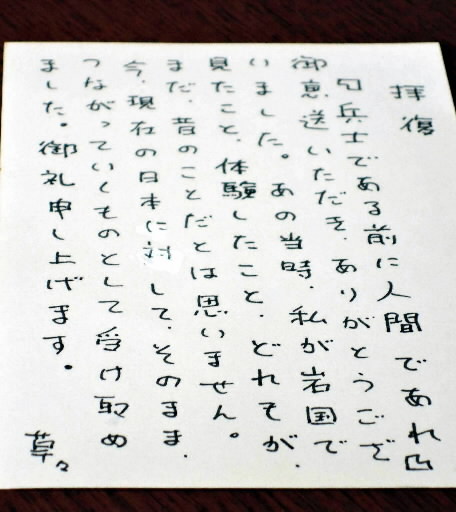 拝復
『兵士である前に人間であれ』
御恵送いただき、ありがとうござ
いました。あの当時、私が岩国で
見たこと、体験したこと、どれもが、
まだ、昔のことだとは思いません。
今、現在の日本に対して、そのまま、
つながっていくものとして受け取め
ました。御礼申し上げます。
草々